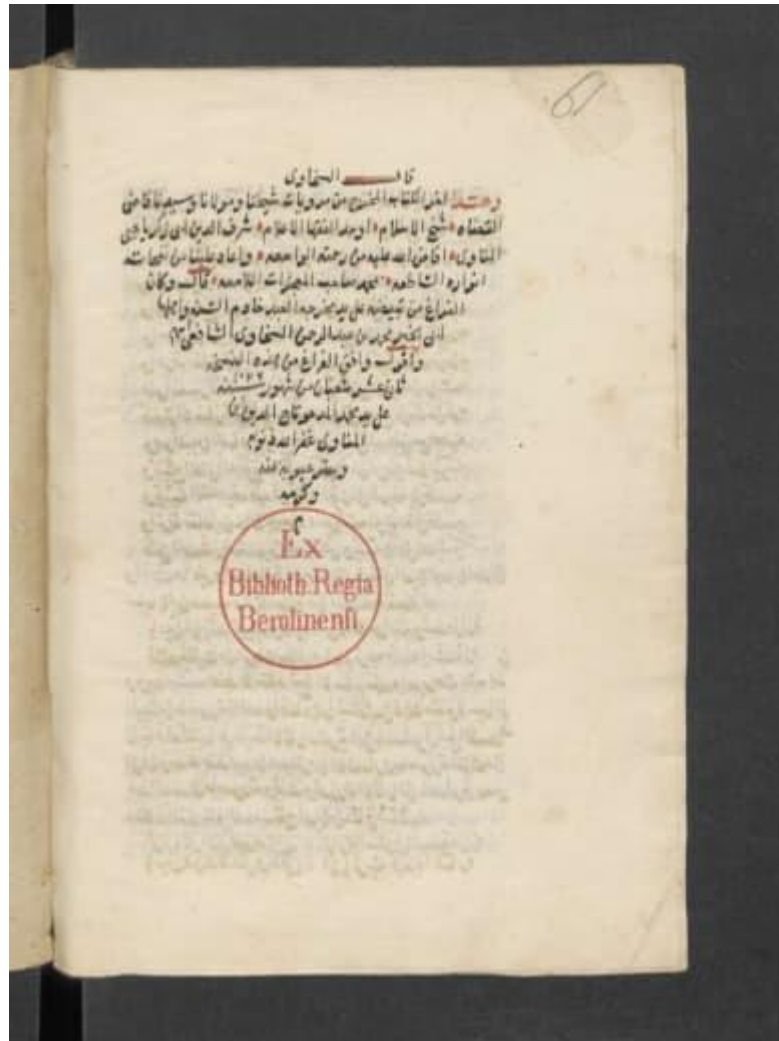 61
قال السخاوى
وهذا القدر الكفايه المخرج من مرويات شيخنا ومولانا وسيدنا قاضى
القضاه شيخ الاسلام اوحد الفقها الاعلام شرف الدين ابى زكريا يحيى
المناوى افاض الله عليه من رحمته الواسعه واعاد علينا من
انواره الساطعه بمحمد صاحب المعجزات اللامعه قال وكان
الفراغ من تبييضه على يد مخرجه العبد خادم السنه
ابى الخير محمد بن عبد الرحمن السخاوى الشافعى
واقول وافق الفراغ من هذه
ثانى عشر شعبان من شهور سنه
على يد محمد المدعو تاج الدين
المناوى غفر الله ذنوبه
وستر عيوبه بمنه
وكرمه
م
Ex
Biblioth. Regia
Berolinenſi.